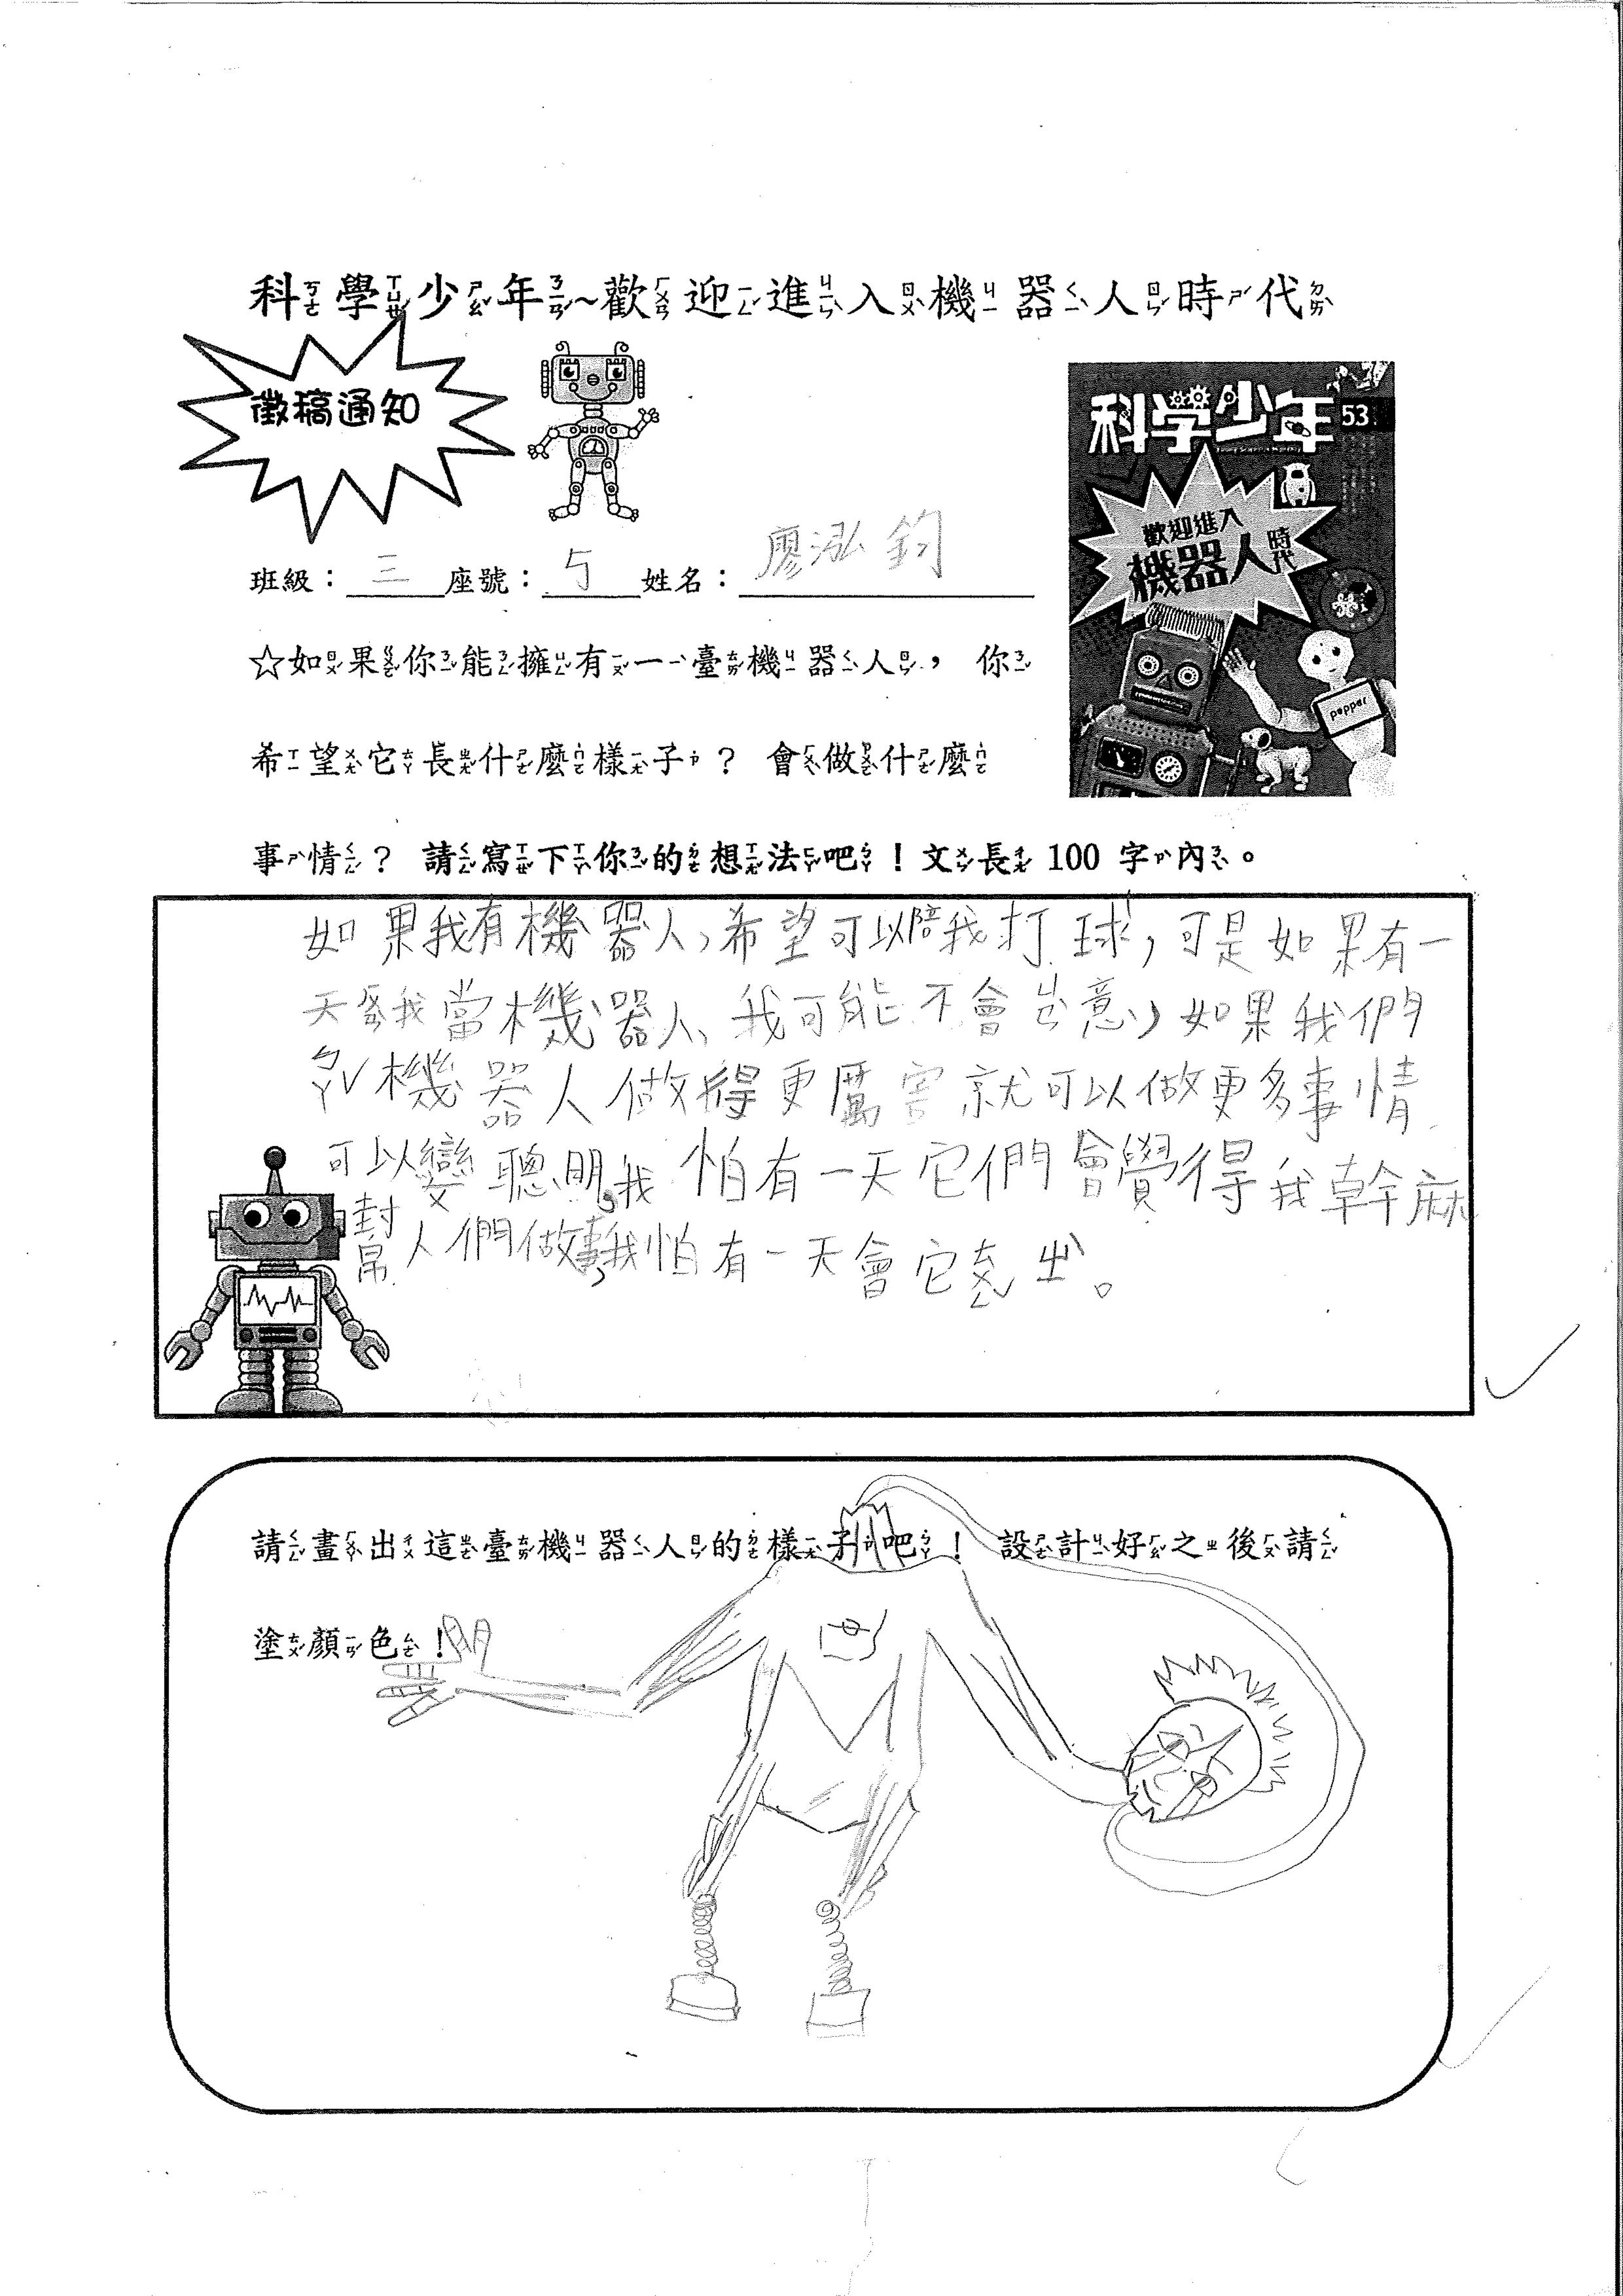 科學少年~歡迎進入機器人時代
徵稿通知
科学少年 53
歡迎進入
機器人時代
pepper
班級：三 座號：5 姓名：廖泓鈞
☆如果你能擁有一臺機器人， 你
希望它長什麼樣子？ 會做什麼
事情？ 請寫下你的想法吧！文長 100 字內。
如果我有機器人，希望可以陪我打球，可是如果有一
天我當機器人、我可能不會意，如果我們
ㄅㄚˇ機器人做得更厲害就可以做更多事情
可以變聰明，我怕有一天它們會覺得我幹麻
幫人們做事，我怕有一天會它出。
請畫出這臺機器人的樣子吧！ 設計好之後請
塗顏色！